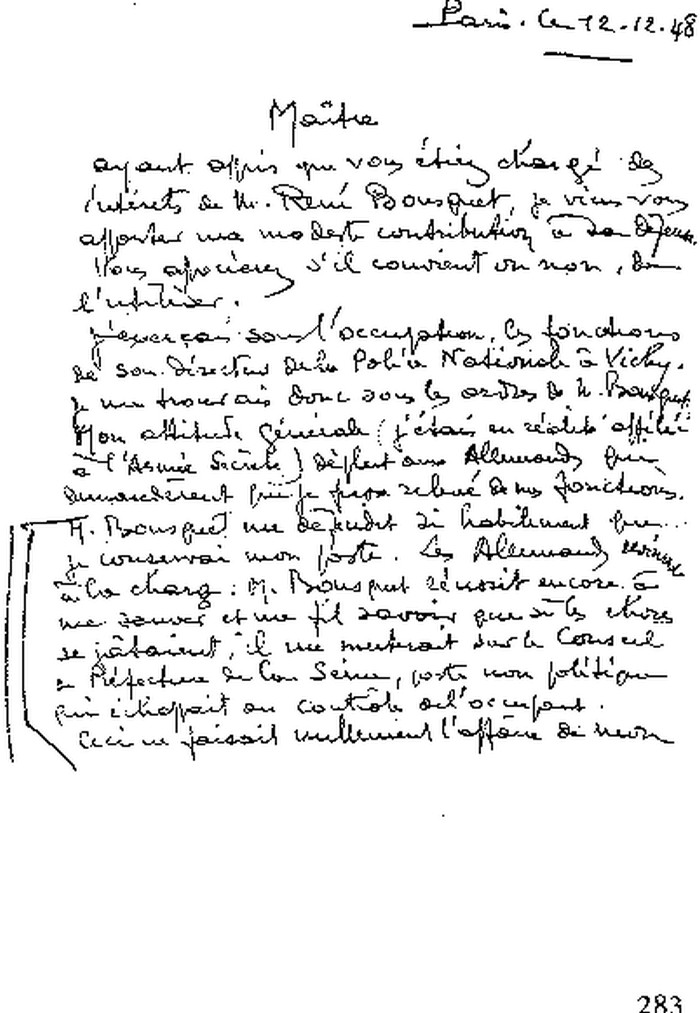 Paris. le 12-12-48
Maître
ayant appris que vous étiez chargé des
intérêts de M. René Bousquet, je viens vous
apporter ma modeste contribution à sa défense.
Vous apprécierez s'il convient ou non, de
l'utiliser.
j'exerçais sous l'occupation, les fonctions
de sous-directeur de la Police Nationale à Vichy.
je me trouvais donc sous les ordres de M. Bousquet.
Mon attitude générale (j'étais en réalité affilié
à l'Armée Secrète) déplut aux Allemands qui
demandèrent que je fusse relevé de mes fonctions.
M. Bousquet me défendit si habilement que...
je conservai mon poste. Les Allemands revinrent
à la charge : M. Bousquet réussit encore à
me sauver et me fit savoir que si les choses
se gâtaient, il me muterait sur le Conseil
de Préfecture de la Seine, poste non politique
qui échappait au contrôle de l'occupant.
Ceci ne faisait nullement l'affaire de mon
283